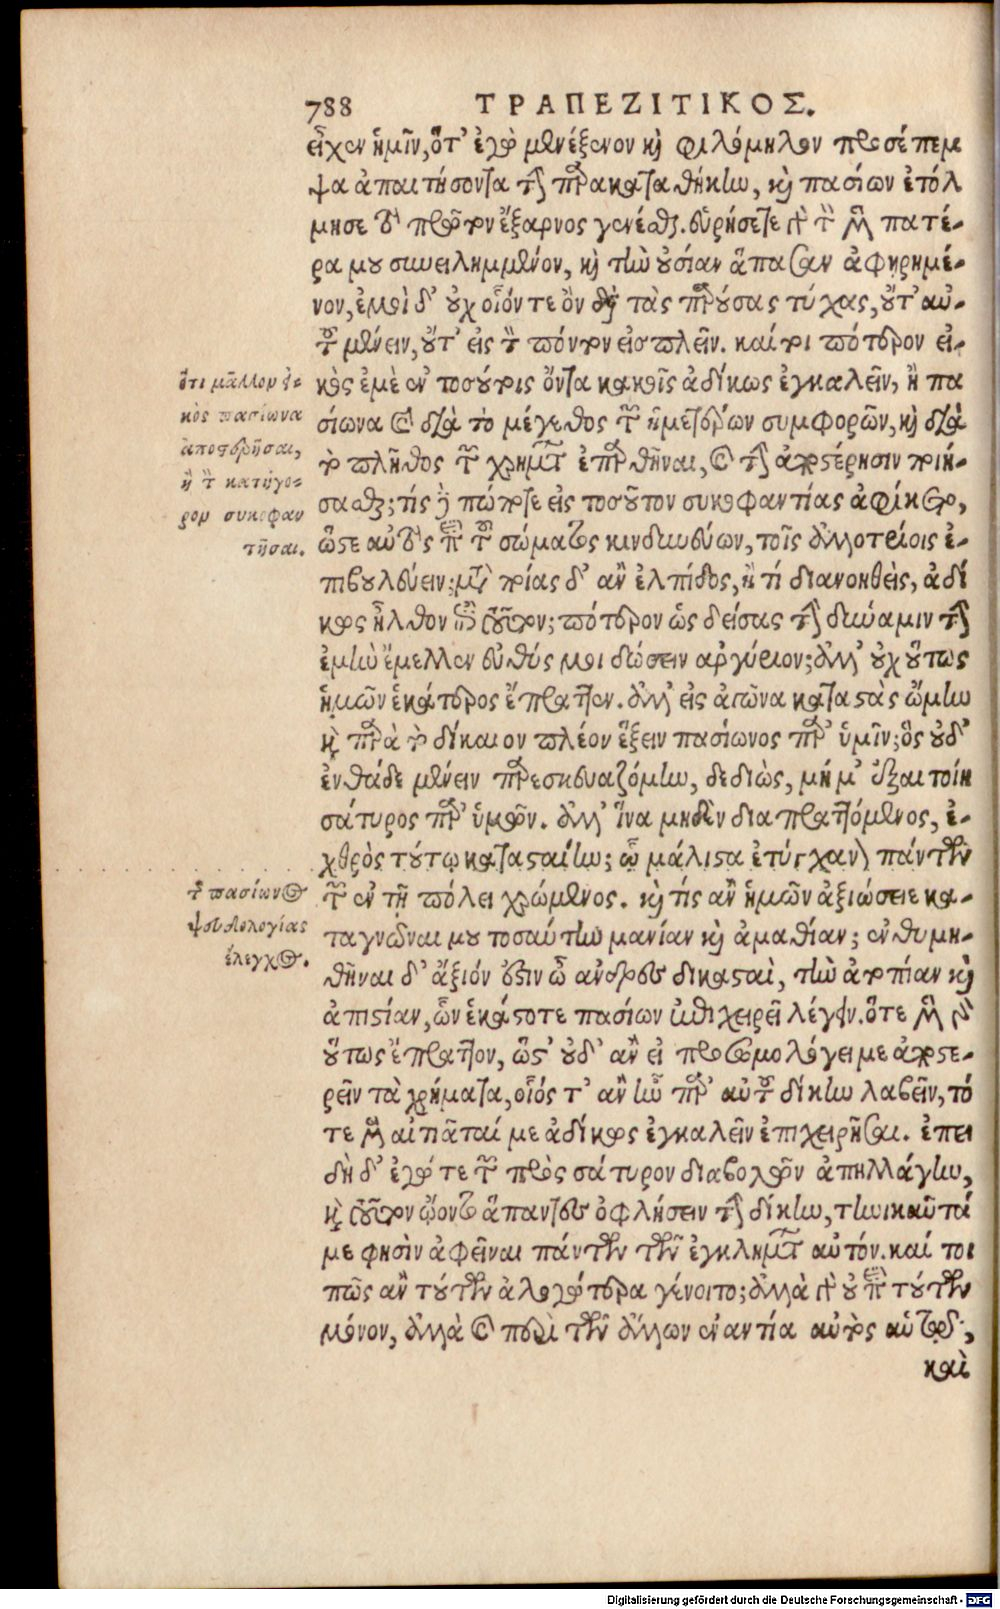 788 ΤΡΑΠΕΖΙΤΙΚΟΣ.
εἶχεν ἡμῖν, ὅτ' ἐγὼ μενέξενον καὶ φιλόμηλον προσέπεμ
ψα ἀπαιτήσοντα τὴν παρακαταθήκην, καὶ πασίων ἐτόλ
μησε τὸ πρῶτον ἔξαρνος γενέσθαι. εὑρήσετε γὰρ τὸν μὲν πατέ-
ρα μου συνειλημμένον, καὶ τὴν οὐσίαν ἅπασαν ἀφηρημέ-
νον, ἐμοὶ δ' οὐχ οἷόν τε ὂν διὰ τὰς παρούσας τύχας, οὔτ' αὐ-
τοῦ μένειν, οὔτ' εἰς τὸν πόντον εἰσπλεῖν. καίτοι πότερον εἰ-
κὸς ἐμὲ ἐν τοσούτοις ὄντα κακοῖς ἀδίκως ἐγκαλεῖν, ἢ πα
σίωνα καὶ διὰ τὸ μέγεθος τῶν ἡμετέρων συμφορῶν, καὶ διὰ
τὸ πλῆθος τῶν χρημάτων ἐπαρθῆναι, καὶ τὴν ἀποστέρησιν ποιή-
σασθαι; τίς δὲ πώποτε εἰς τοσοῦτον συκοφαντίας ἀφίκετο,
ὥστε αὐτὸς περὶ τοῦ σώματος κινδυνεύων, τοῖς ἀλλοτρίοις ἐ-
πιβουλεύειν; μετὰ ποίας δ' ἂν ἐλπίδος, ἢ τί διανοηθεὶς, ἀδί
κως ἦλθον ἐπὶ τοῦτον; πότερον ὡς δείσας τὴν δύναμιν τὴν
ἐμὴν ἔμελλεν εὐθύς μοι δώσειν ἀργύριον; ἀλλ' οὐχ οὕτως
ἡμῶν ἑκάτερος ἔπραττεν. ἀλλ' εἰς ἀγῶνα καταστὰς ᾤμην
καὶ παρὰ τὸ δίκαιον πλέον ἕξειν πασίωνος παρ' ὑμῖν; ὃς οὐδ'
ἐνθάδε μένειν παρεσκευαζόμην, δεδιὼς, μή μ' ἐξαιτοίη
σάτυρος παρ' ὑμῶν. ἀλλ' ἵνα μηδὲν διαπραττόμενος, ἐ-
χθρὸς τούτῳ κατασταίην; ᾧ μάλιστα ἐτύγχανον πάντων
τῶν ἐν τῇ πόλει χρώμενος. καὶ τίς ἂν ἡμῶν ἀξιώσειε κα-
ταγνῶναι μου τοσαύτην μανίαν καὶ ἀμαθίαν; ἐνθυμη-
θῆναι δ' ἄξιόν ἐστιν ὦ ἄνδρες δικασταὶ, τὴν ἀτοπίαν καὶ
ἀπιστίαν, ὧν ἑκάστοτε πασίων ἐπιχειρεῖ λέγειν. ὅτε μὲν γὰρ
οὕτως ἔπραττον, ὥστ' οὐδ' ἂν εἰ προσωμολόγει με ἀποστε-
ρεῖν τὰ χρήματα, οἷός τ' ἂν ἦν παρ' αὐτοῦ δίκην λαβεῖν, τό
τε μὲν αἰτιᾶταί με ἀδίκως ἐγκαλεῖν ἐπιχειρῆσαι. ἐπει
δὴ δ' ἐγώ τε τῶν πρὸς σάτυρον διαβολῶν ἀπηλλάγην,
καὶ τοῦτον ᾤοντο ἅπαντες ὀφλήσειν τὴν δίκην, τηνικαῦτά
με φησὶν ἀφεῖναι πάντων τῶν ἐγκλημάτων αὐτόν. καί τοι
πῶς ἂν τούτων ἀλογώτερα γένοιτο; ἀλλὰ γὰρ οὐ περὶ τούτων
μόνον, ἀλλὰ καὶ περὶ τῶν ἄλλων ἐναντία αὐτὸς αὑτῷ,
καὶ
ὅτι μᾶλλον εἰ-
κὸς πασίωνα
ἀποστερῆσαι,
ἢ τὸν κατήγο-
ρον συκοφαν
τῆσαι.
τῆς πασίωνος
ψευδολογίας
ἔλεγχος.
Digitalisierung gefördert durch die Deutsche Forschungsgemeinschaft - DFG